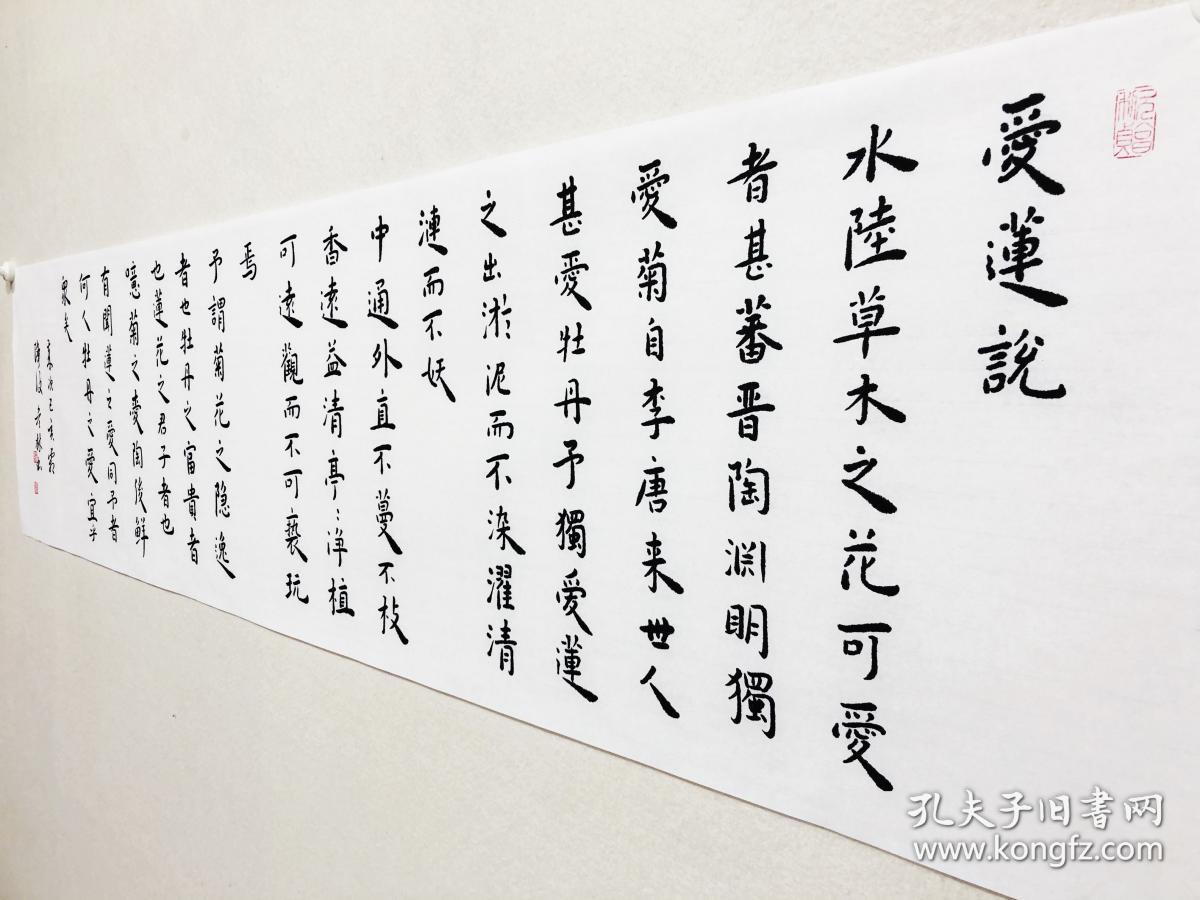 愛蓮說
水陸草木之花可愛
者甚蕃晋陶淵明獨
愛菊自李唐来世人
甚愛牡丹予獨愛蓮
之出淤泥而不染濯清
漣而不妖
中通外直不蔓不枝
香遠益清亭:净植
可遠觀而不可褻玩
焉
予謂菊花之隐逸
者也牡丹之富貴者
也蓮花之君子者也
噫菊之愛陶後鮮
有聞蓮之愛同予者
何人牡丹之愛宜乎
衆矣
孔夫子旧书网
www.kongfz.com